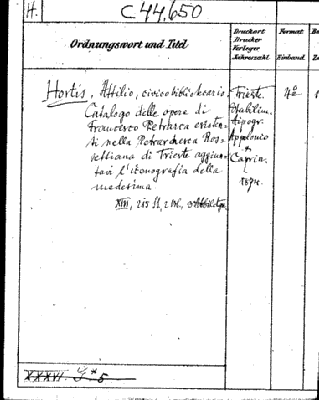 H.
C 44,650
Ordnungswort und Titel
Druckort
Drucker
Verleger
Jahreszahl
Format
Einband
Hortis, Attilio, civico bibliotecario.
Catalogo delle opere di
Francesco Petrarca esisten-
ti nella Petrarchesca Ros-
settiana di Trieste aggiun-
tavi l'iconografia della
medesima
XIII, 2 Bl,
Trieste.
Stabilim.
tipogr.
Appolonio
&
Caprin.
1874.
4º
XXXVI. G * 5